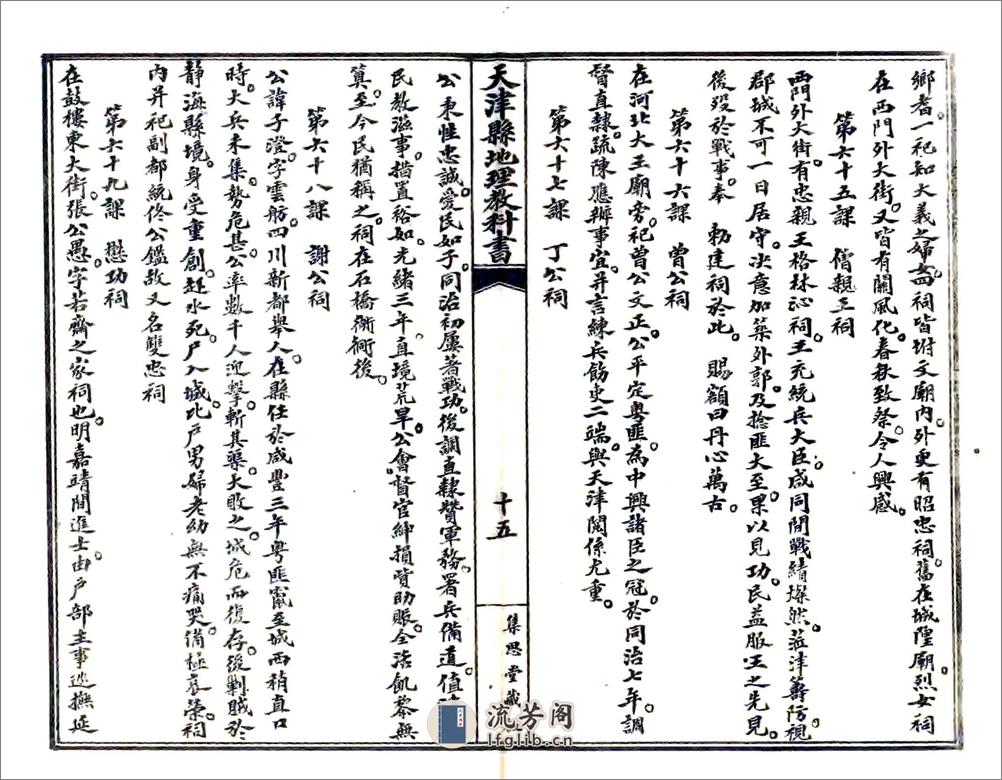 鄉者一祀知大義之婦女四祠皆坿文廟內外更有昭忠祠舊在城隍廟烈女祠
在西門外大街又皆有關風化春秋致祭令人興感
第六十五課　僧親王祠
西門外大街有忠親王格林沁祠王充統兵大臣咸同間戰績燦然蒞津籌防視
郡城不可一日居守決意加築外郭及捻匪大至果以見功民益服王之先見
後歿於戰事奉　勅建祠於此　賜額曰丹心萬古
第六十六課　曾公祠
在河北大王廟旁祀曾公文正公平定粵匪為中興諸臣之冠於同治七年調
督直隸疏陳應辦事宜并言練兵飭吏二端與天津関係尤重
第六十七課　丁公祠
天津縣地理教科書
十五
集思堂藏
公秉性忠誠愛民如子同治初屢著戰功後調直隸贊軍務署兵備道值
民教滋事措置裕如光緒三年直境荒旱公會督官紳損貲助賑全活飢黎無
算至今民猶稱之祠在石橋衚衕後
第六十八課　謝公祠
公諱子澄字雲舫四川新都舉人在縣任於咸豐三年粵匪竄至城西稍直口
時大兵未集勢危甚公率數千人迎擊斬其渠大敗之城危而復存後剿賊於
靜海縣境身受重創赴水死尸入城比戶男婦老幼無不痛哭備極哀榮祠
內并祀副都統佟公鑑故又名雙忠祠
第六十九課　懋功祠
在鼓樓東大街張公愚字若齋之家祠也明嘉靖間進士由戶部主事巡撫延
流芳阁
lfglib.cn